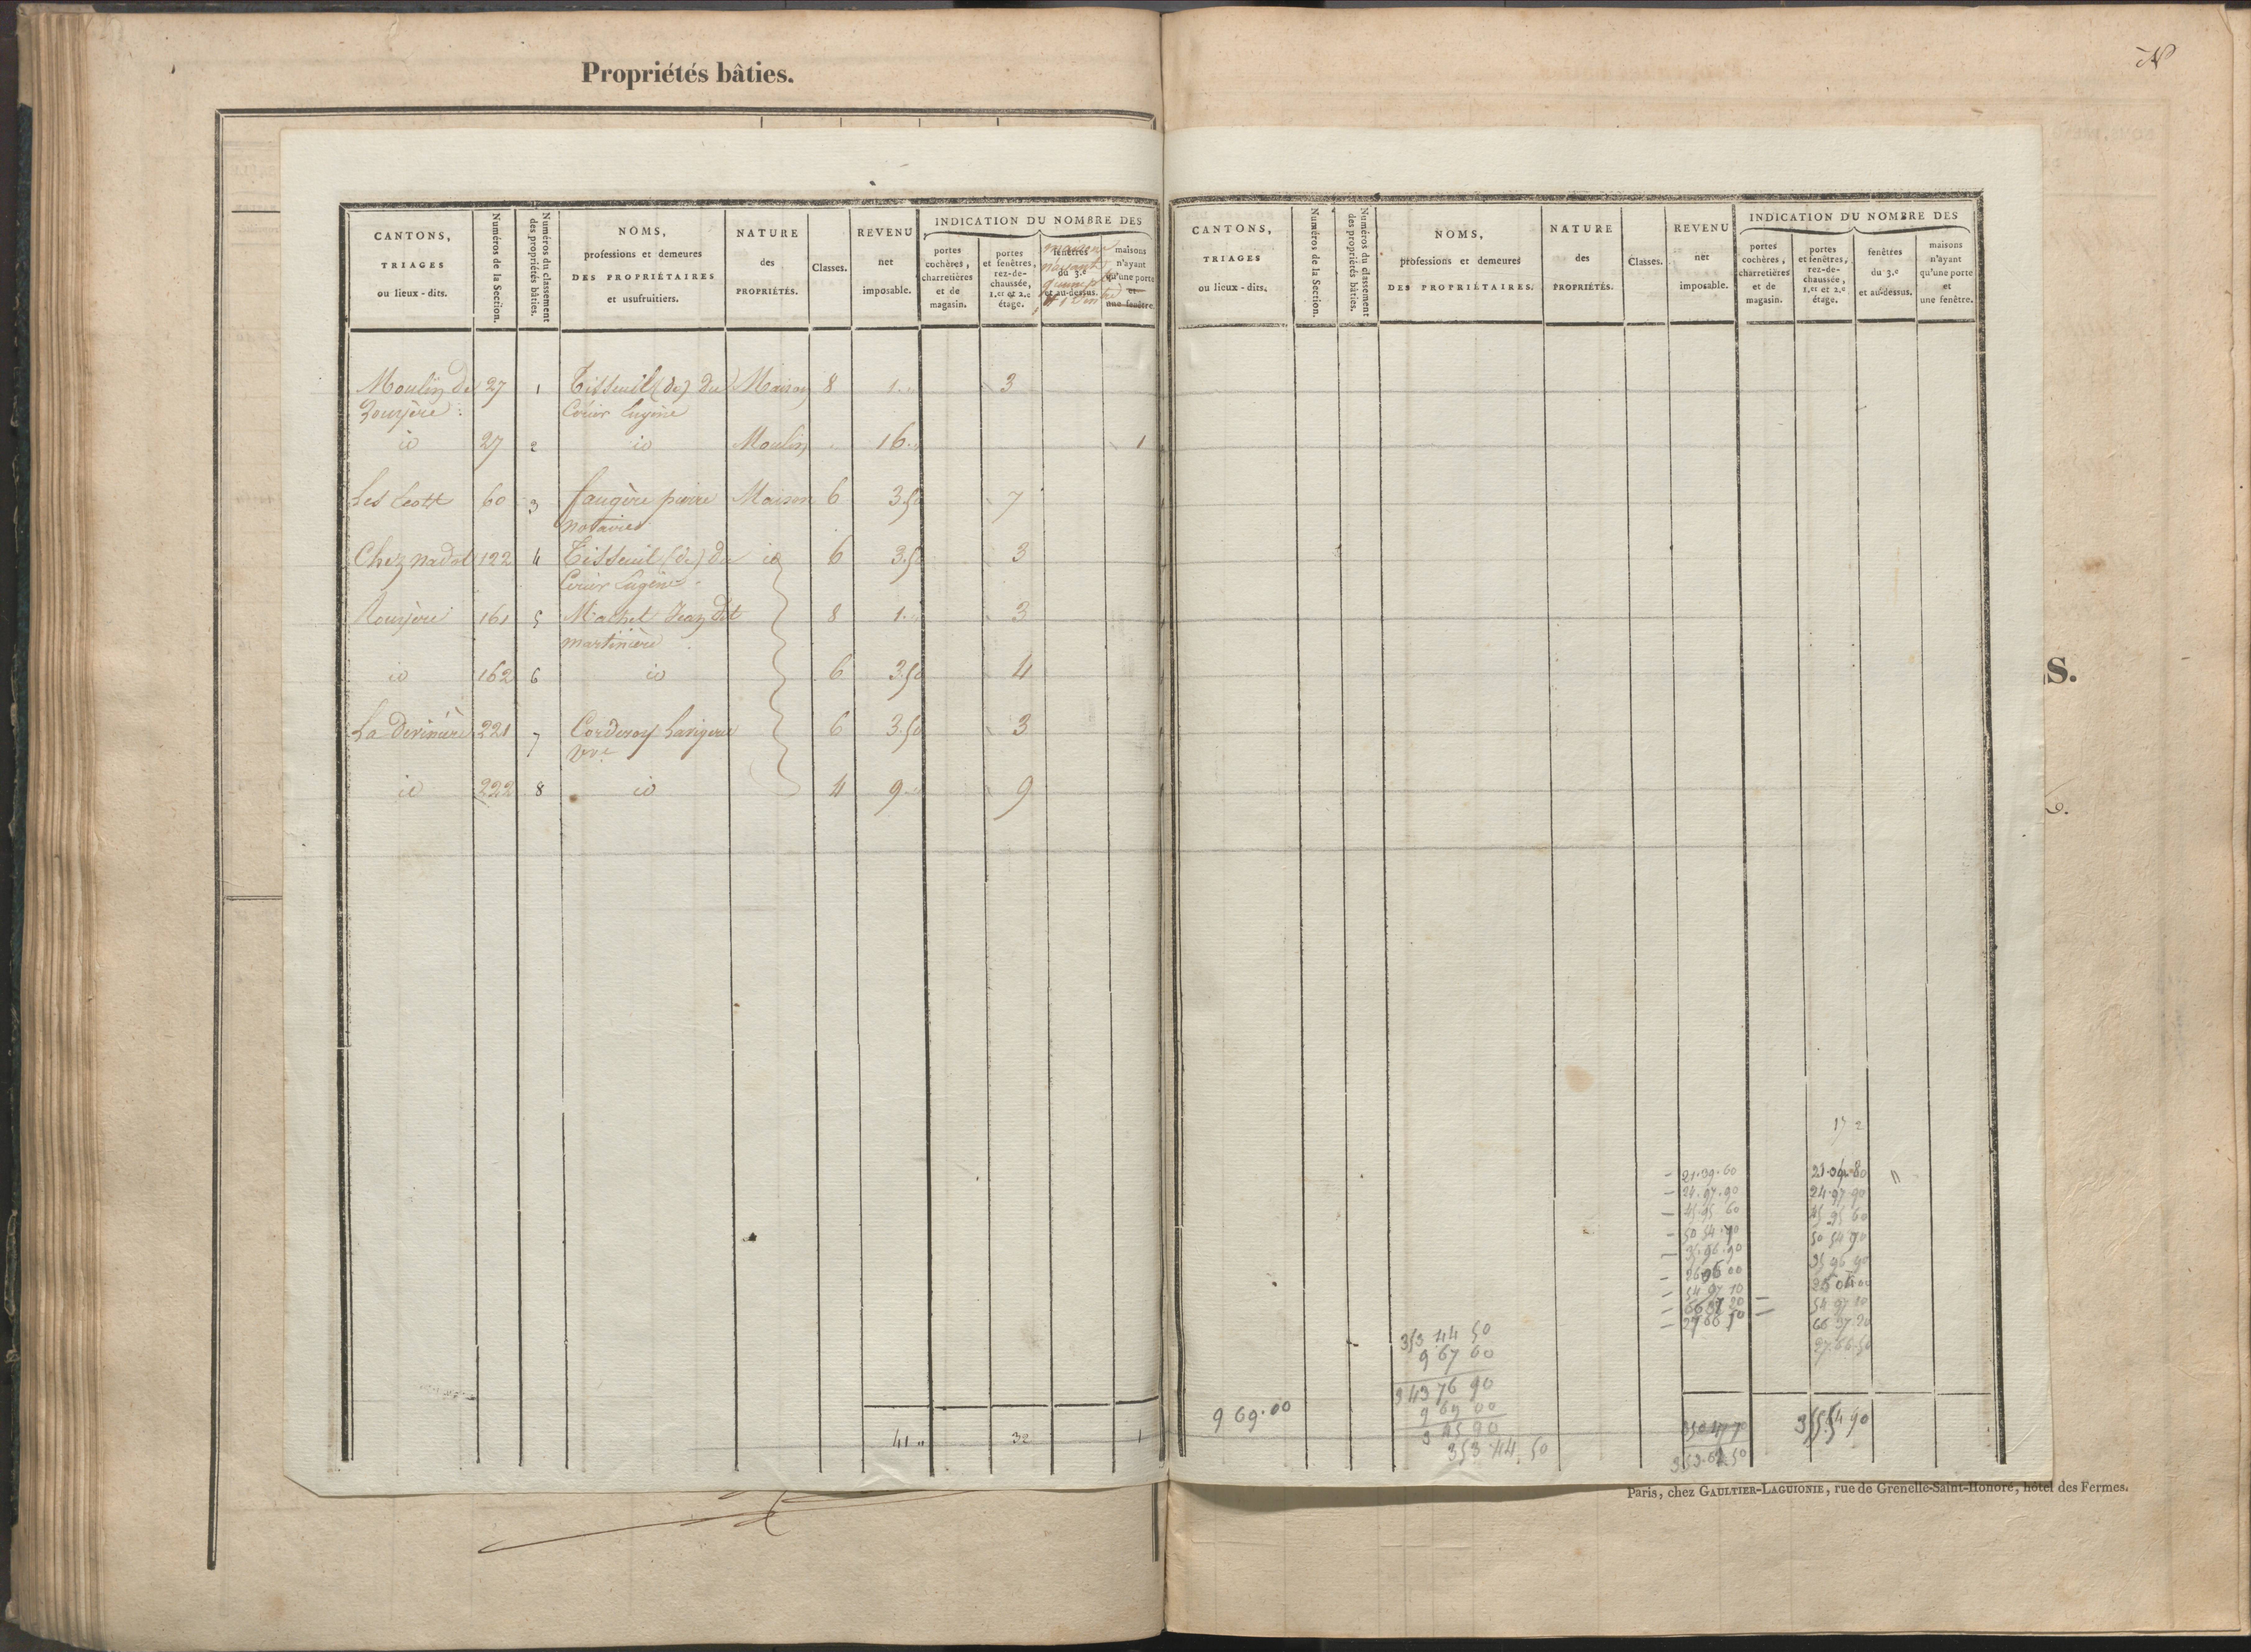 Propriétés bâties.
CANTONS, TRIAGES ou lieux - dits.
Numéros de la Section.
Numéros du classement des propriétés bâties.
NOMS, professions et demeures DES PROPRIÉTAIRES et usufruitiers.
NATURE des PROPRIÉTÉS.
Classes.
REVENU net imposable.
INDICATION DU NOMBRE DES
portes cochères, charretières et de magasin.
portes et fenêtres, rez-de-chaussée, 1.er et 2.e étage.
fenêtres du 3.e et au-dessus.
maisons n'ayant qu'une porte et une fenêtre.
Moulin de 27 1 Tisseuil (de) du Maison 8 1 ,, 3
Cerier Eugène
id 27 2 id Moulin 16 ,, 1
Les 60 3 faugère pierre Maison 6 3.50 7
notaire
Chez nadal 122 4 Tisseuil (de) du id 6 3.50 3
Cerier Eugène
161 5 Machet Jean dit 8 1 ,, 3
martinière
id 162 6 id 6 3.50 4
La Devinière 221 7 Corderoy Lavigerie 6 3.50 3
vve
id 222 8 id 4 9 ,, 9
41 ,, 32 1
CANTONS, TRIAGES ou lieux - dits.
Numéros de la Section.
Numéros du classement des propriétés bâties.
NOMS, professions et demeures DES PROPRIÉTAIRES.
NATURE des PROPRIÉTÉS.
Classes.
REVENU net imposable.
INDICATION DU NOMBRE DES
portes cochères, charretières et de magasin.
portes et fenêtres, rez-de-chaussée, 1.er et 2.e étage.
fenêtres du 3.e et au-dessus.
maisons n'ayant qu'une porte et une fenêtre.
17 2
21.39.60
24.97.90 24.97.90
45.95 60 45 95 60
50 54.90 50 54 90
35.96.90 35 96 90
54 97 10 54 97 10
66 37 20 66 37 20
27 66 50 27.66.50
353 44 50
9 67 60
343 76 90
9 69 00
353.44.50
9 69.00
355.54 90
S.
Paris, chez GAULTIER-LAGUIONIE, rue de Grenelle-Saint-Honoré, hôtel des Fermes.